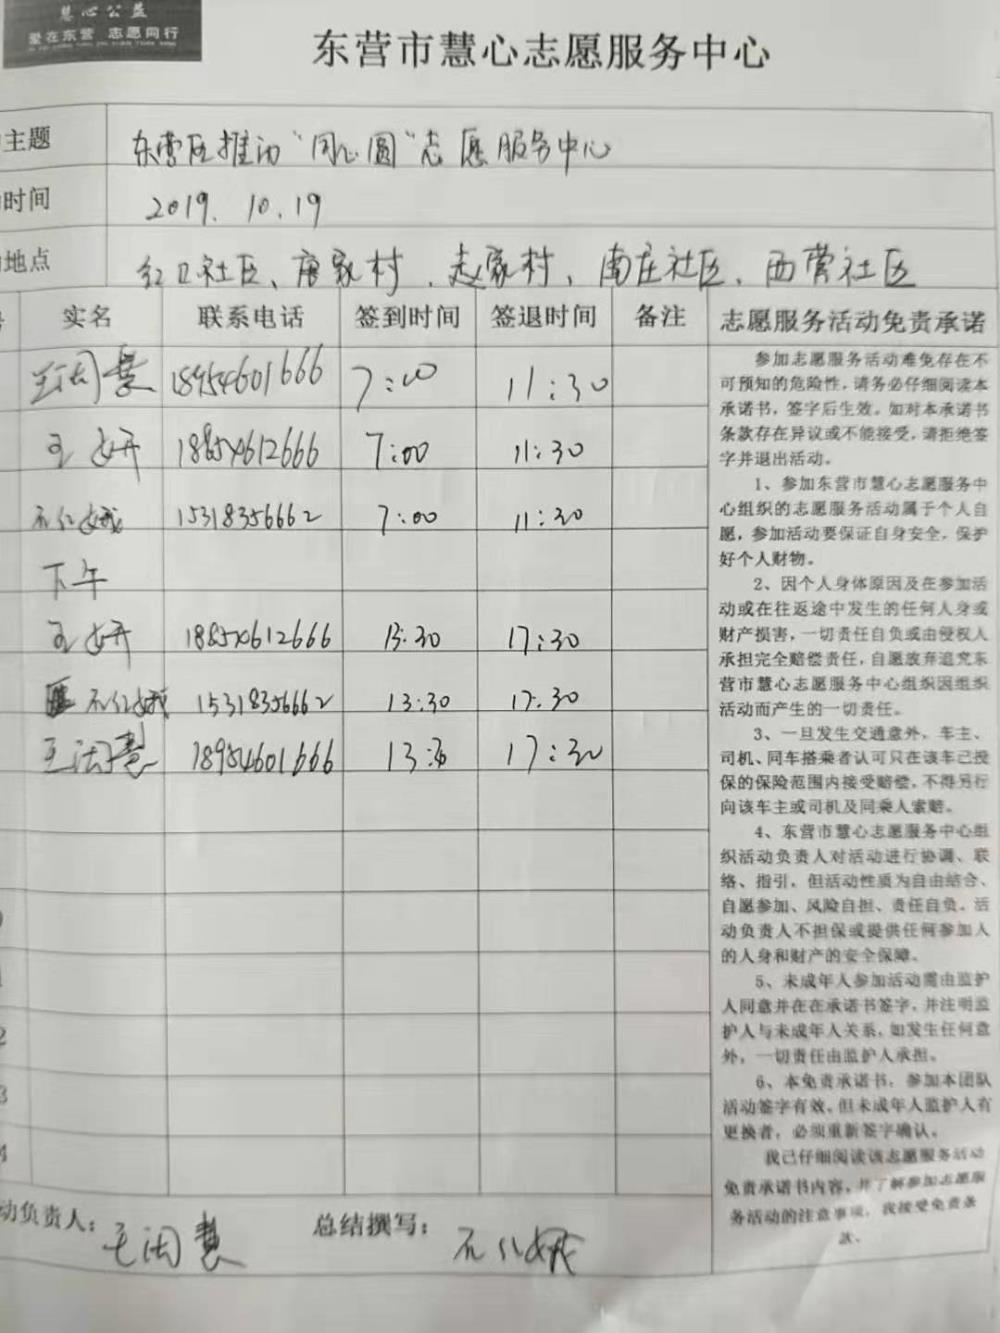 慧心公益
爱在东营 志愿同行
东营市慧心志愿服务中心
主题 东营区推动"同心圆"志愿服务中心
时间 2019.10.19
地点 红卫社区、唐家村、赵家村、南庄社区、西营社区
实名 联系电话 签到时间 签退时间 备注 志愿服务活动免责承诺
18954601666 7:00 11:30
王妍 18854612666 7:00 11:30
15318356662 7:00 11:30
下午
王妍 18854612666 13:30 17:30
15318356662 13:30 17:30
18954601666 13:30 17:30
参加志愿服务活动难免存在不
可预知的危险性,请务必仔细阅读本
承诺书,签字后生效。如对本承诺书
条款存在异议或不能接受,请拒绝签
字并退出活动。
1、参加东营市慧心志愿服务中
心组织的志愿服务活动属于个人自
愿,参加活动要保证自身安全,保护
好个人财物。
2、因个人身体原因及在参加活
动或在往返途中发生的任何人身或
财产损害,一切责任自负或由侵权人
承担完全赔偿责任,自愿放弃追究东
营市慧心志愿服务中心组织因组织
活动而产生的一切责任。
3、一旦发生交通意外,车主、
司机、同车搭乘者认可只在该车已投
保的保险范围内接受赔偿,不得另行
向该车主或司机及同乘人索赔。
4、东营市慧心志愿服务中心组
织活动负责人对活动进行协调、联
络、指引,但活动性质为自由结合、
自愿参加、风险自担、责任自负。活
动负责人不担保或提供任何参加人
的人身和财产的安全保障。
5、未成年人参加活动需由监护
人同意并在在承诺书签字,并注明监
护人与未成年人关系,如发生任何意
外,一切责任由监护人承担。
6、本免责承诺书,参加本团队
活动签字有效,但未成年人监护人有
更换者,必须重新签字确认。
我已仔细阅读该志愿服务活动
免责承诺书内容,并了解参加志愿服
务活动的注意事项,我接受免责条
款。
动负责人: 总结撰写: